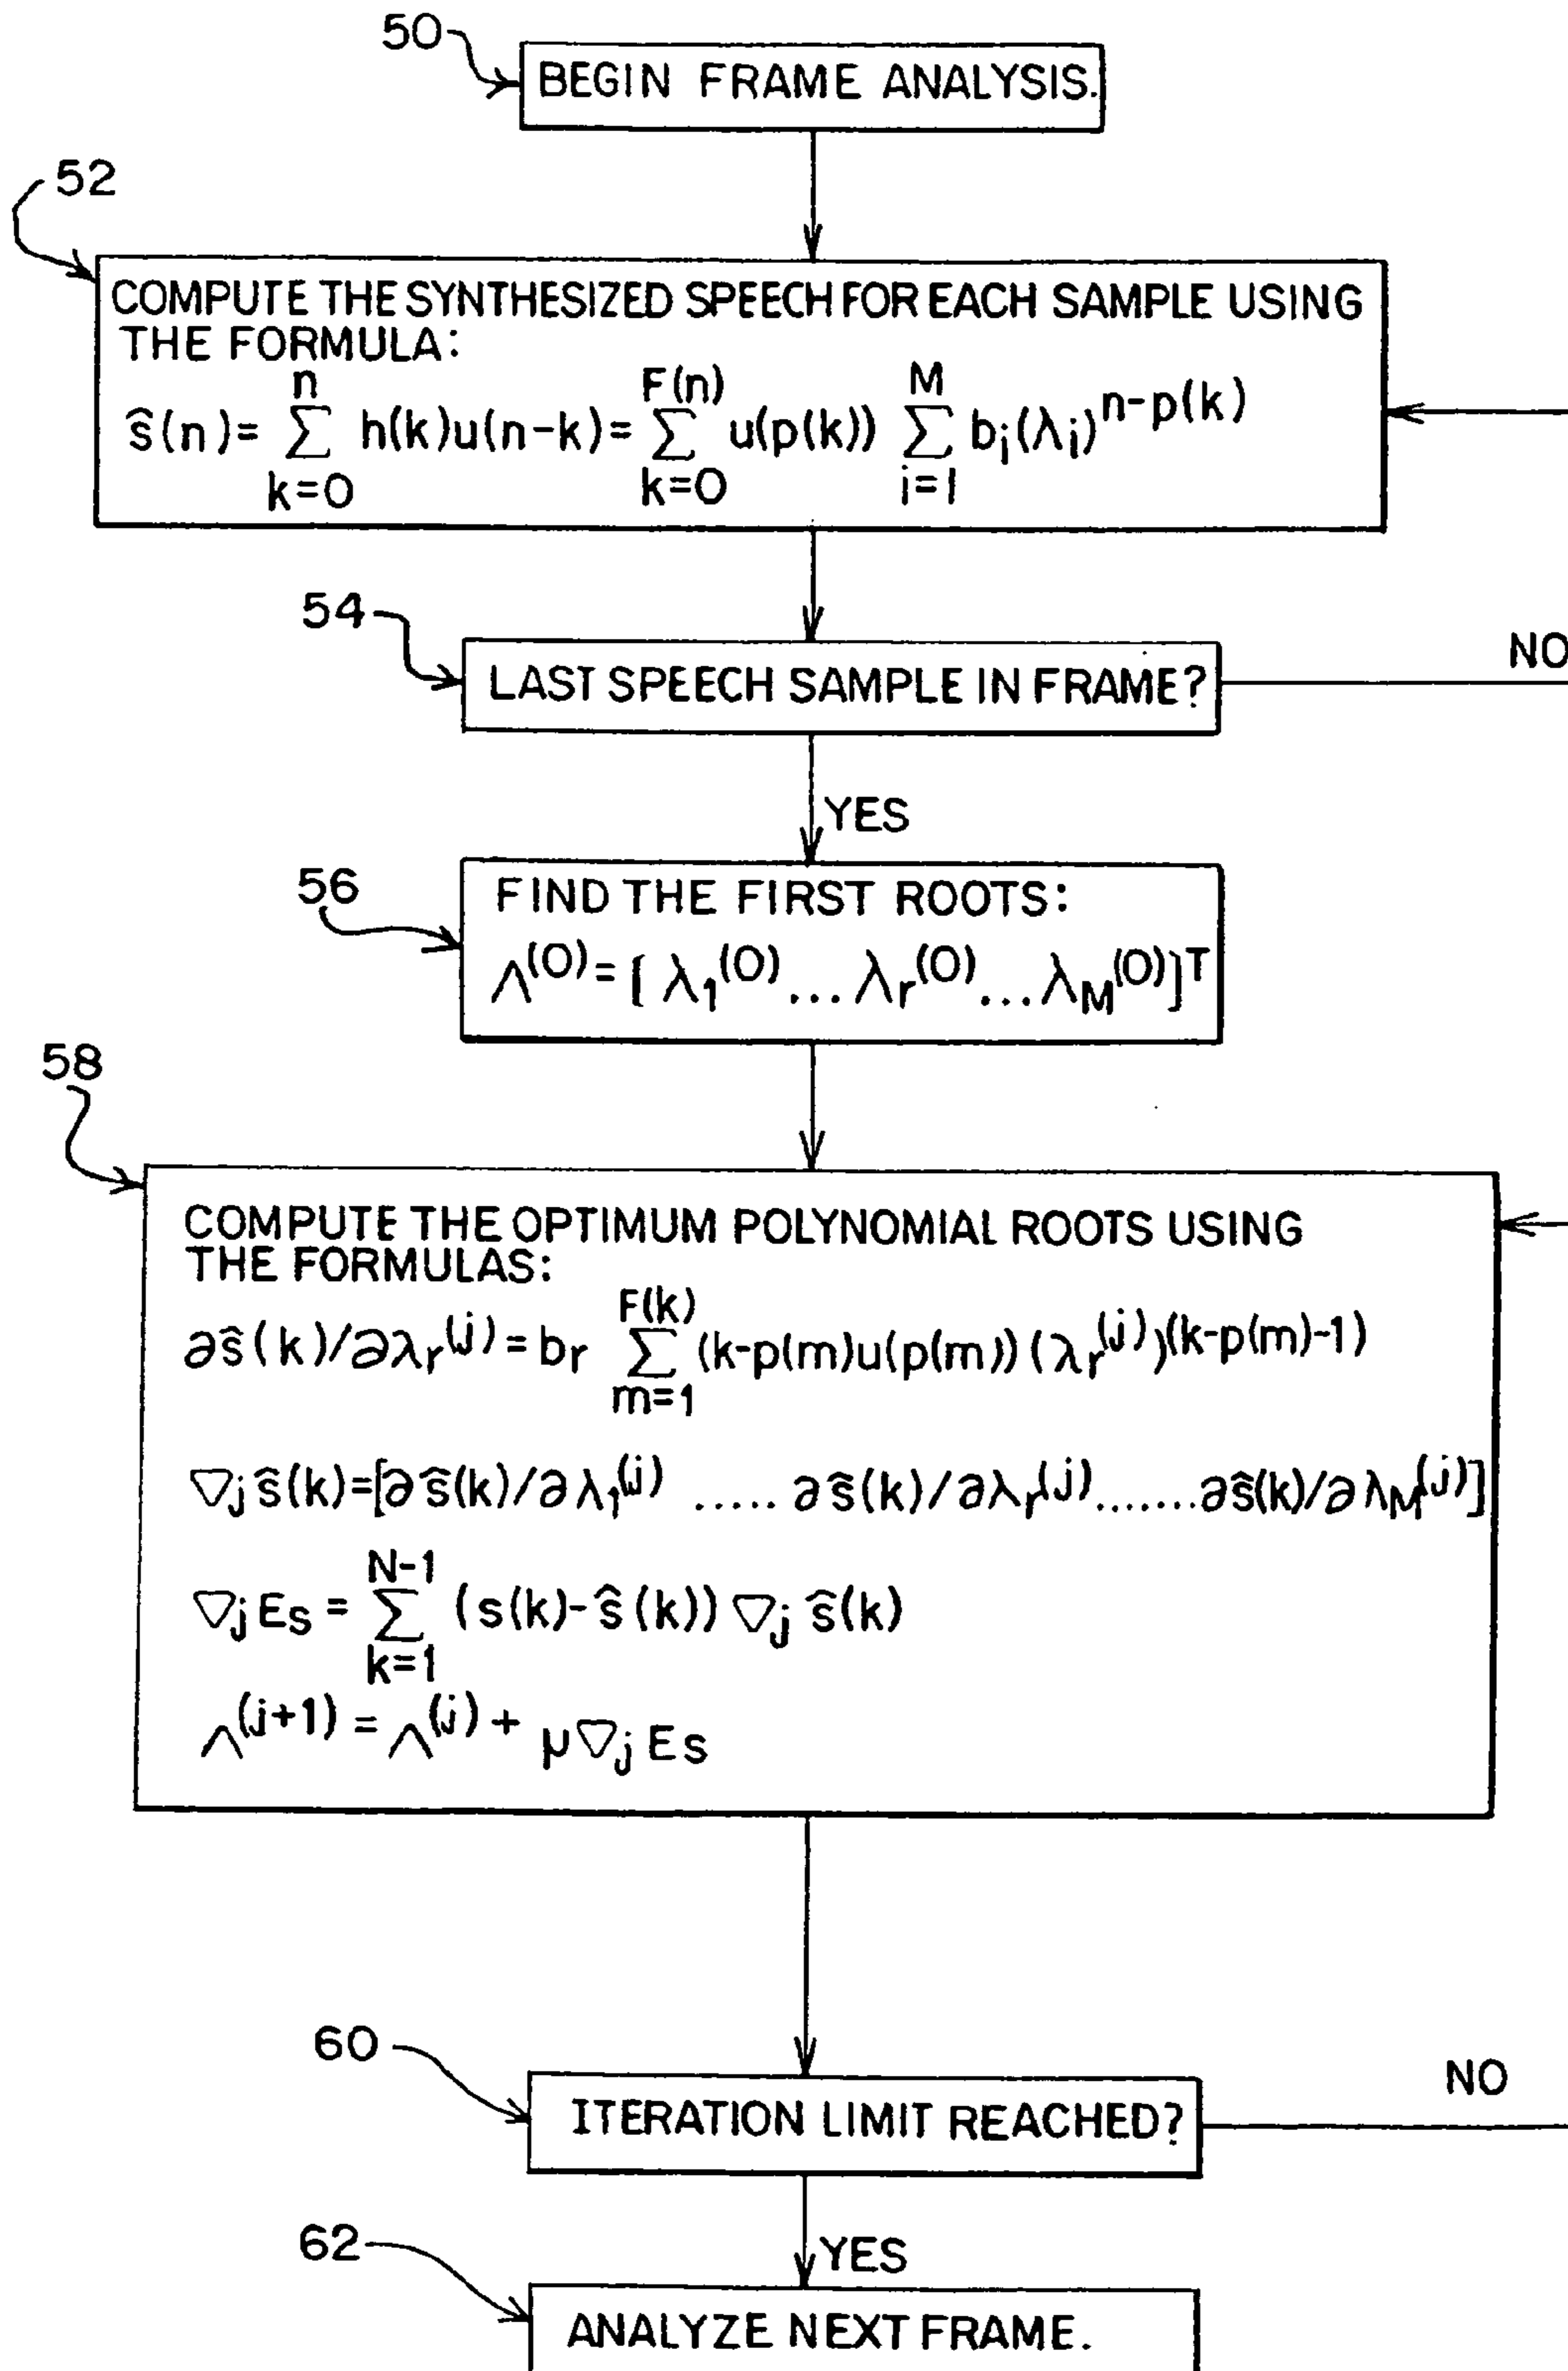 50
BEGIN FRAME ANALYSIS.
52
COMPUTE THE SYNTHESIZED SPEECH FOR EACH SAMPLE USING
THE FORMULA:
ŝ(n)= ∑_{k=0}^{n} h(k)u(n-k)= ∑_{k=0}^{F(n)} u(p(k)) ∑_{i=1}^{M} b_i(λ_i)^{n-p(k)}
54
LAST SPEECH SAMPLE IN FRAME?
NO
YES
56
FIND THE FIRST ROOTS:
Λ^{(0)}=[λ_1^{(0)}...λ_r^{(0)}...λ_M^{(0)}]^T
58
COMPUTE THE OPTIMUM POLYNOMIAL ROOTS USING
THE FORMULAS:
∂ŝ(k)/∂λ_r^{(j)}=b_r ∑_{m=1}^{F(k)} (k-p(m)u(p(m))(λ_r^{(j)})^{(k-p(m)-1)}
∇_j ŝ(k)=[∂ŝ(k)/∂λ_1^{(j)} ..... ∂ŝ(k)/∂λ_r^{(j)}.......∂ŝ(k)/∂λ_M^{(j)}]
∇_j E_s = ∑_{k=1}^{N-1} (s(k)-ŝ(k)) ∇_j ŝ(k)
Λ^{(j+1)} = Λ^{(j)} + μ∇_j E_s
60
ITERATION LIMIT REACHED?
NO
YES
62
ANALYZE NEXT FRAME.